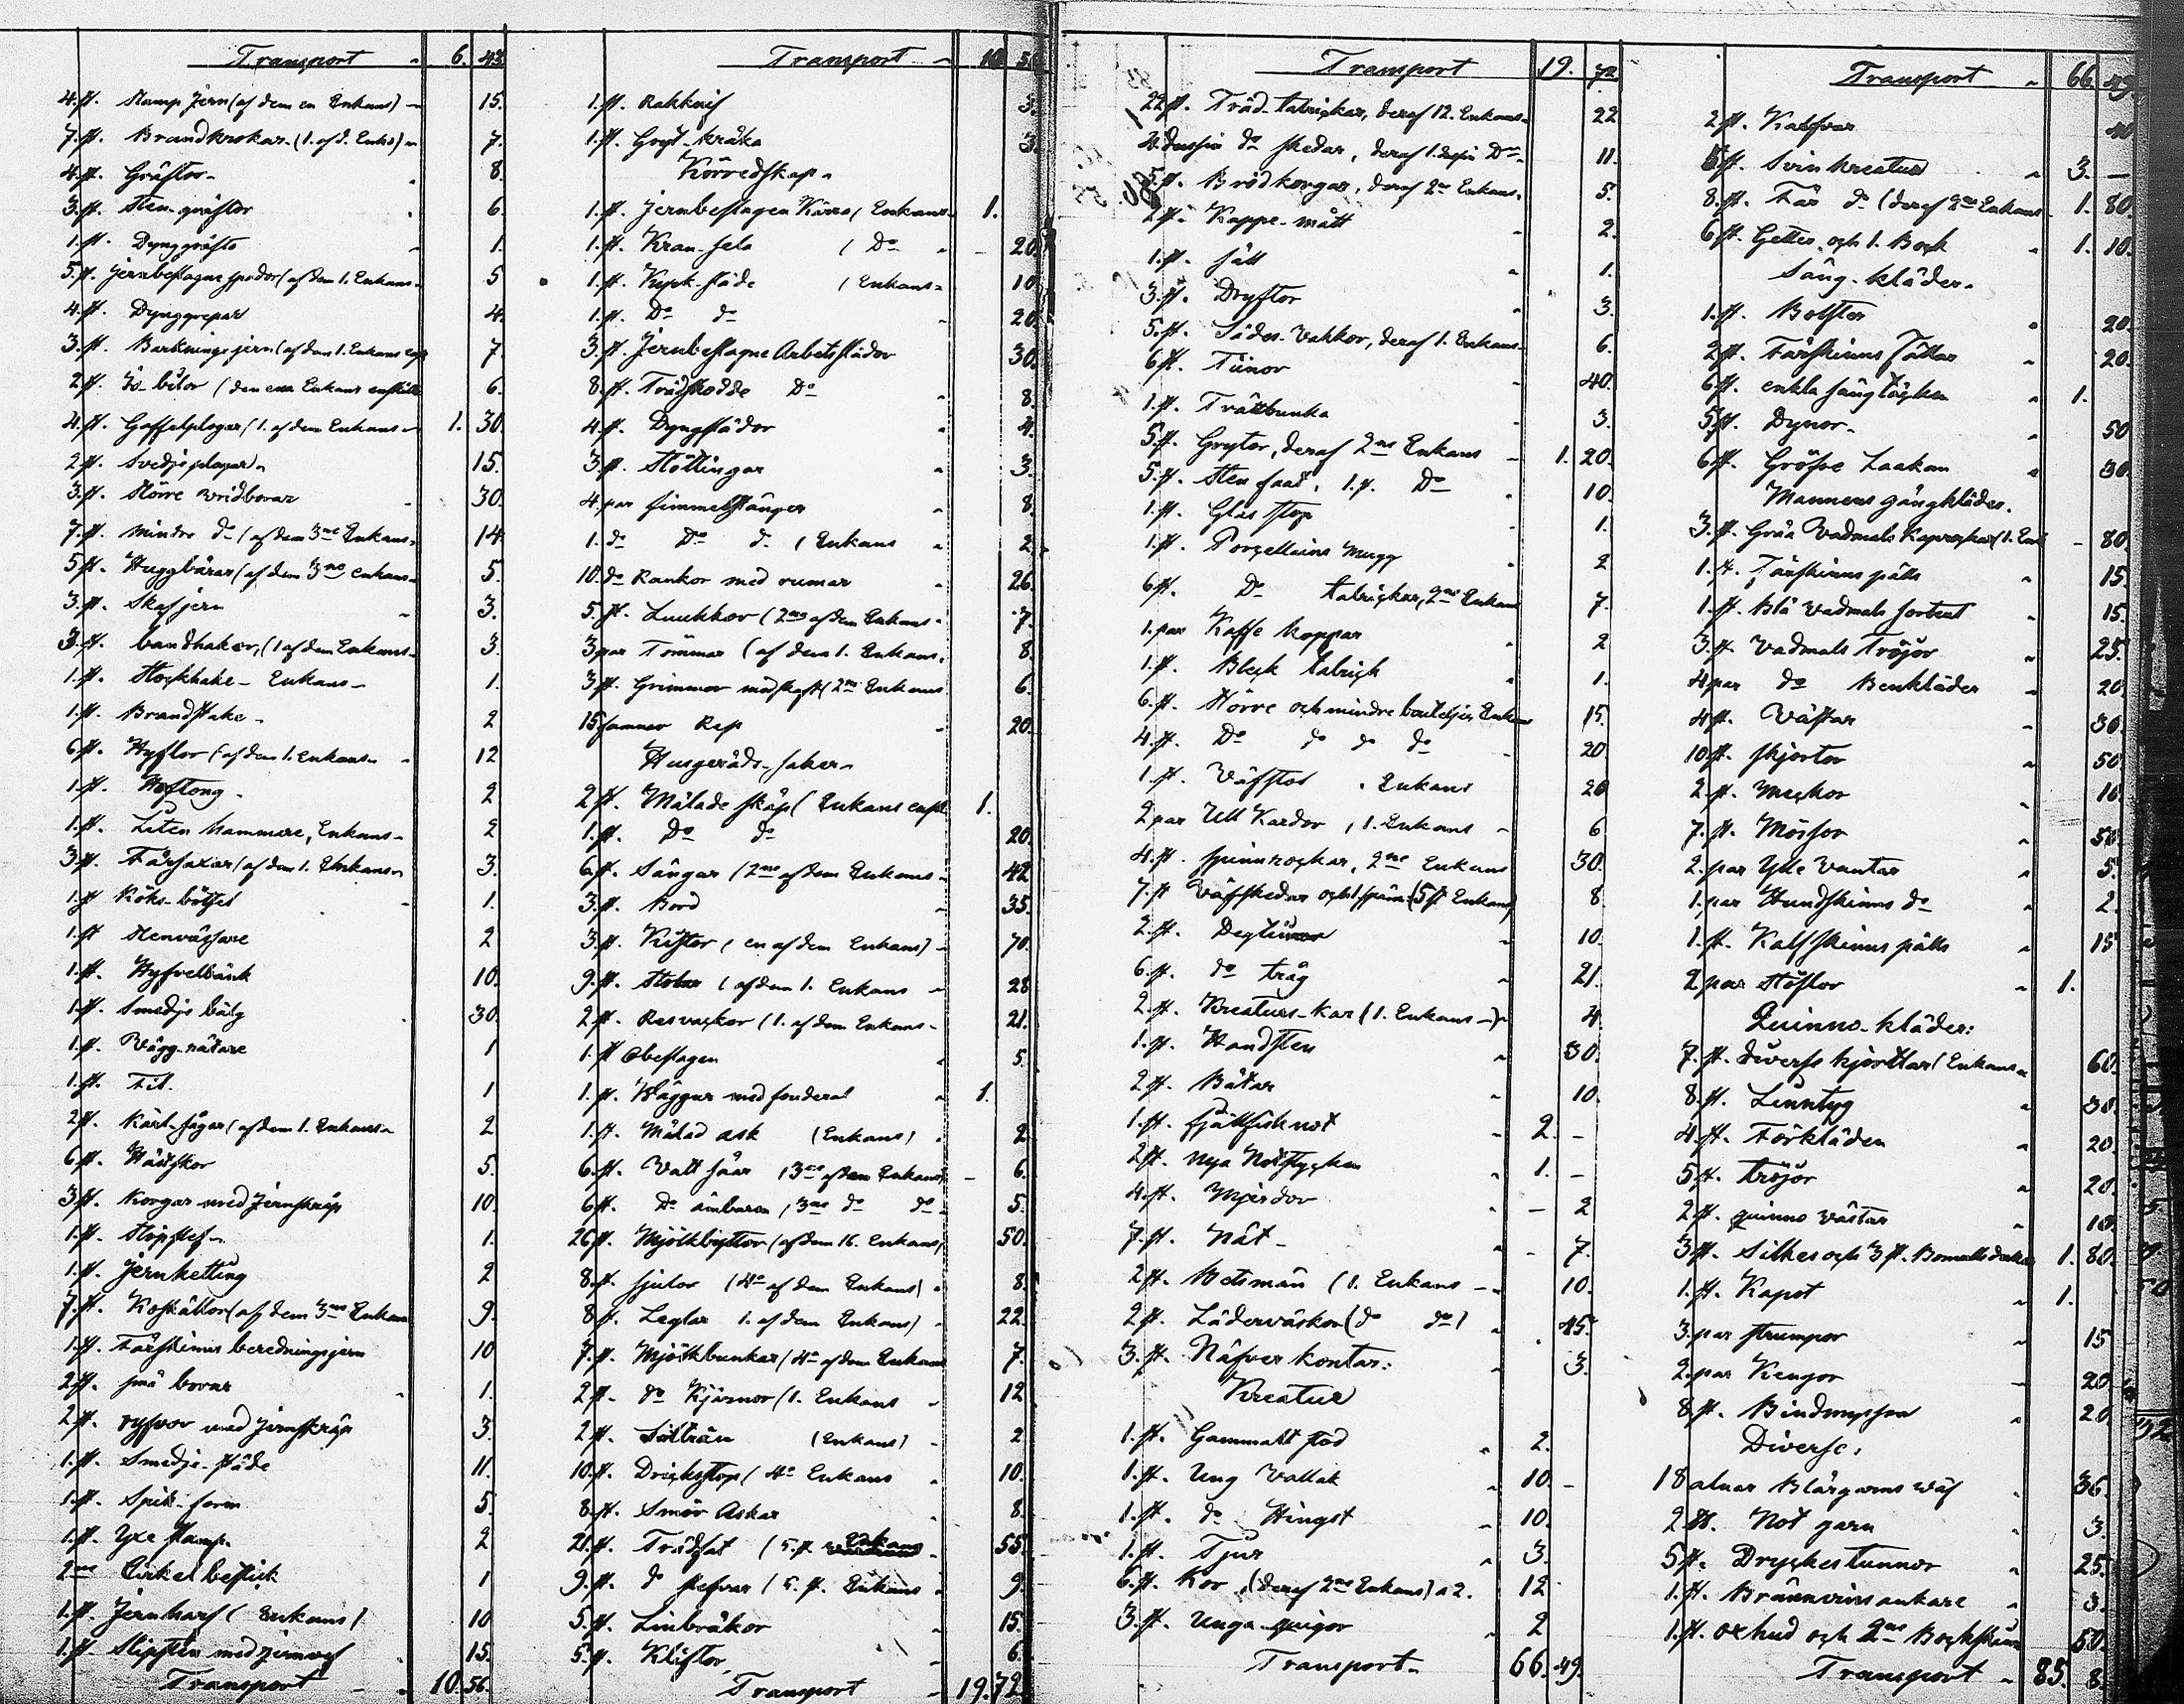 Transport 6. 43.
4.st. Stamp Jern (af dem en Enkans) 15.
7.st. Brandkrokar (1. af d. Enks) 7.
4.st. Gräftor 8.
3.st. Sten-gräftor 6.
1.st. Dynggräfta 1.
5.st. Jernbeslagne spador (af dem 1. Enkans 5
4.st. Dynggrepar 4.
3.st. Barknings jern (af dem 1. Enkans 7
2.st. Is-bilor (den ena Enkans enskilta 6.
4.st. Gaffelplogar (1. af dem Enkans 1. 30.
2.st. Svedjeplogar 15.
3.st. Större vridborar 30.
7.st. mindre do (af dem 3ne Enkans 14
5.st. Huggbårar (af dem 3ne enkans 5.
3.st. Skafjern 3.
3.st. bandhakar, (1 af dem Enkans 3
1.st. Stockhake - Enkans 1.
1.st. Brandstake 2
6.st. Hyflor (af dem 1. Enkans 12
1.st. Hoftong 2
1.st. Liten hammare, Enkans 2
3.st. Fårsaxar (af dem 1. Enkans 3.
1.st Köks-bötsel 1.
1.st Stenvässare 2
1.st. Hyfvelbänk 10.
1.st. Smedje bälg 30.
1.st. Vägg-nätare 1
1.st. Fil. 1
2.st. Kärl-sågar (af dem 1. Enkans 2
6.st. Hästskor 5.
3.st. Korgar med Jernskrap 10.
1.st. 1.
1.st. Jernketting 2
7.st. Koskällor (af dem 3ne Enkans 9.
1.st. Fårskinns beredningsjern 10
2.st. små borar 1.
2.st. ryssor med Jernskrap 3.
1.st. Smedje-städe 11.
1.st. Spik-form 5.
1.st. Yxe stamp 2
2ne Cirkel bestick 1
1.st. Jernharf (Enkans) 10
1.st. Slipsten med jernvef 15.
Transport 10. 56.
Transport 10 56
1.st. Rakknif 3.
1.st. Gryt-kråka 3.
Körredskap
1.st. Jernbeslagen Kärra (Enkans 1.
1.st. Kran-sela (Do 20.
1.st. Kyrk-släde (Enkans 10
1.st. Do do 20.
3.st. Jernbeslagne Arbetsslädor 30.
8.st. Trädskodde Do 8.
4.st. Dyngslädor 4.
3.st. Stöttingar 3.
4.par fimmelstänger 8.
1.do Do do (Enkans 2.
10.do Rankor med rumar 26.
5.st. Luukkor (2ne af dem Enkans 7
3.par Tömmar (af dem 1. Enkans 8.
3.st. Grimmor med skaft (2ne Enkans 6.
15 famnar Rep 20.
Husgeråds-saker
2.st. Målade skåp (Enkans 1.
1.st. Do do 20
6.st. Sängar (2ne af dem Enkans 42
3.st. Bord 35.
3.st. Kistor (en af dem Enkans) 70.
9.st. Stolar (af dem 1. Enkans 28
2.st. Resvackor (1. af dem Enkans 21.
1.st Obeslagen 5.
1.st. Väggur med foderal 1.
1.st. Målad ask (Enkans) 2
6.st. Vatt såar (3ne af dem Enkans) 6.
6.st. Do ämbaren (3ne do do 5.
26.st. Mjölkbyttor (af dem 16. Enkans) 50.
8.st. fjulor (4a af dem Enkans) 8
8.st. Leglar 1. af dem Enkans) 22.
7.st. Mjölkbunkar (4a af dem Enkans 7.
2.st. do Kjärnor (1. Enkans 12
2.st. Silträn (Enkans) 2
10.st. Dricksstop (4a Enkans 10.
8.st. Smör Askar 8.
21.st. Trädfat (5.st Enkans 55.
9.st. do stefvar (5.st. Enkans 9.
5.st. Linbråkor 15.
5.st. Klistor 6.
Transport 19. 72
Transport 19. 72
22.st. Träd-talrickar, deraf 12. Enkans 22
2.dussin do skedar, deraf 1.dussin Do 11.
5.st. Brödkorgar, deraf 2ne Enkans 5.
2.st. Kappe-mått 2.
1.st. såll 1.
3.st. Dryftor 3.
5.st. Sädes-vakkor, deraf 1. Enkans 6.
6.st. Tünor 40.
1.st. Trättbunka 3.
5.st. Grytor, deraf 2ne Enkans 1. 20.
5.st. Sten faat, 1.st. Do 10.
1.st. Glas stop 1.
1.st. Porcellains mugg 2
6.st. Do talrickar, 2ne Enkans 7.
1.par Kaffe koppar 2
1.st. Bleck talrick 1.
6.st. Större och mindre bouteljer Enkans 15.
4.st. Do do do do 20
1.st. Väfstol Enkans 20
2.par Ull Kardor, 1. Enkans 6
4.st. spinnrockar, 2ne Enkans 30.
7.st Väfskedar och 1 späm (5 st Enkans) 8
2.st. Degtünor 10.
6.st. do tråg 21.
2.st. Kreaturs-kar (1. Enkans) 4
1.st. Handsten 30.
2.st. Båtar 10.
1.st. fjällfisknot 2. -
2.st. nya Notstycken 1. -
4.st. Mjärdor - 2
7.st. Nät - 7.
2.st. Betsmän (1. Enkans 10.
2.st. Läderväskor (do do) 45.
3.st. Näfver kontar: 3.
Kreatur
1.st. Gammalt stod 2.
1.st. Ung Vallak 10. -
1.st. do Hingst 10.
1.st. Tjur 3.
6.st. Kor (deraf 2ne Enkans) a 2. 12
3.st. Unga quigor 2
Transport 66. 49.
Transport 66. 49.
2.st. Kalfvar 40
5.st. Svin kreatur 3. -
8.st. Får do (deraf 2ne Enkans 1. 80.
6.st. Getter och 1. Bock 1. 10.
Säng-kläder.
1.st. Bolster 20.
2.st. Fårskinns fällar 20.
6.st. enkla sängtäcken 1.
5.st. Dynor 50
6.st. Gröfve Laakan 30.
Mannens gångkläder.
3.st. Gråa Vadmals Kaprockar (1. Enk - 80.
1.st. Fårskinns päls 15.
1.st. Blå Vadmals sortout 15.
3.st. Vadmals Tröjor 25.
4.par do Benkläder 20
4.st. Västar 30.
10.st. skjortor 50.
2.st. Meckor 10.
7.st. Mössor 50.
2.par Ylle Vantar 5.
1.par Hundskinns do 2.
1.st. Kalfskinns päls 15
2.par Stöflor 1.
Quinno-kläder:
7.st. diverse kjorttlar (Enkans 60.
8.st. Linntyg 30.
4.st. Förkläden 20
5.st. tröjor 20.
2.st. quinno västar 10.
3.st. Silkes och 3 st. Bomulls dukar 1. 80.
1.st. Kapot 1.
3.par strumpor 15
2.par Kengor 20
8.st. Bindmyssor 20
Diverse:
18 alnar Blårgarns väf 36.
2.℔. Not garn 3.
5.st. Dryckestunnor 25.
1.st. Brännvins ankare 3.
1.st. oxhud och 2ne Bockskinn 50.
Transport 85. 8.